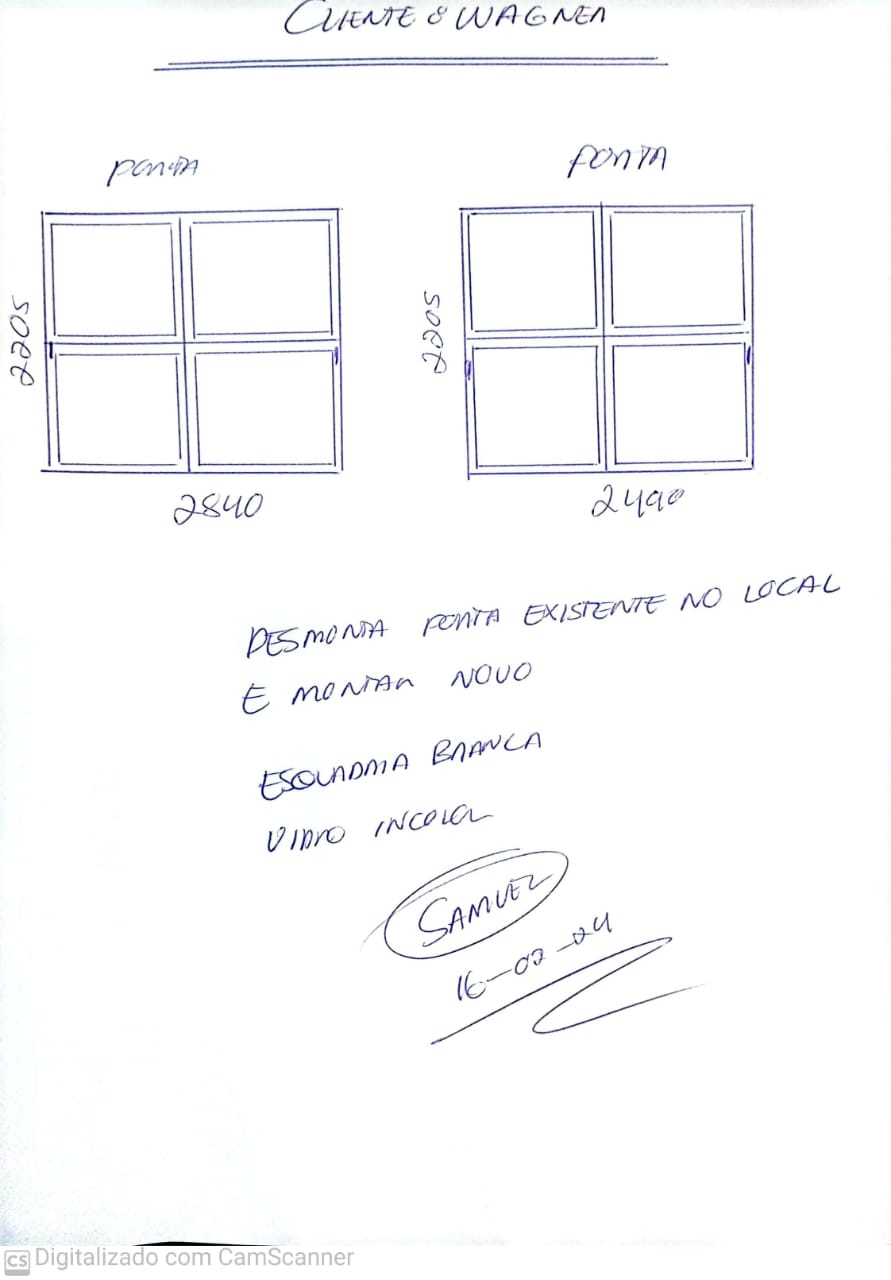 CLIENTE: WAGNER
PORTA
PORTA
2205
2205
2840
2490
DESMONTA PORTA EXISTENTE NO LOCAL
E MONTAR NOVO
ESQUADRIA BRANCA
VIDRO INCOLOR
SAMUEL
16-02-24
CS Digitalizado com CamScanner